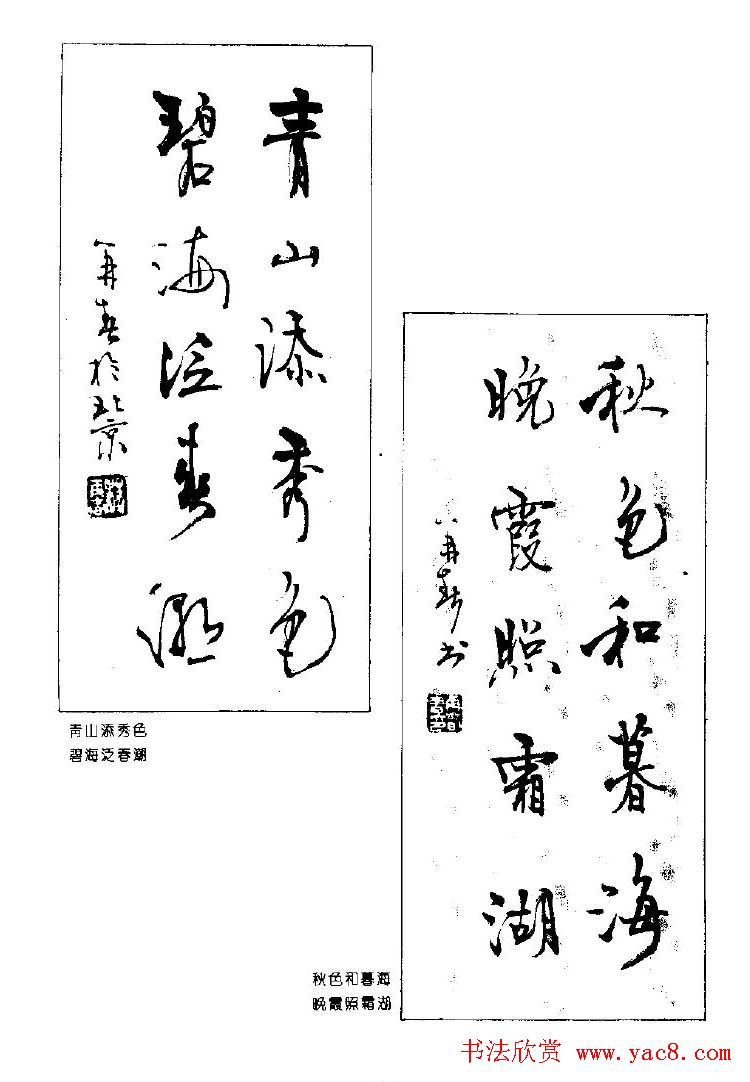 青山添秀色
碧海泛春潮
再春於北京
青山添秀色
碧海泛春潮
秋色和暮海
晚霞照霜湖
再春书
秋色和暮海
晚霞照霜湖
书法欣赏 www.yac8.com